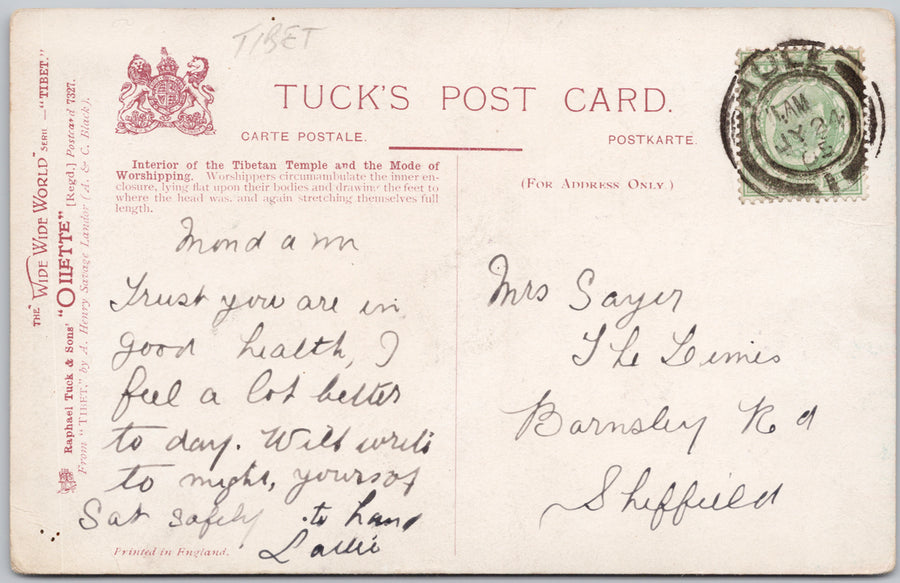 TIBET
TUCK'S POST CARD.
CARTE POSTALE.
POSTKARTE.
(FOR ADDRESS ONLY.)
Interior of the Tibetan Temple and the Mode of
Worshipping. Worshippers circumambulate the inner en-
closure, lying flat upon their bodies and drawing the feet to
where the head was, and again stretching themselves full
length.
THE "WIDE WIDE WORLD" SERIES—"TIBET."
Raphael Tuck & Sons' "OILETTE" [Regd.] Postcard 7327.
From "TIBET," by A. Henry Savage Landor (A. & C. Black).
HULL
MY 24
Mond a mn
Trust you are in
good health, I
feel a lot better
to day. Will write
to night, yours of
Sat safely to hand
Printed in England.
Mrs Sayer
The Limes
Barnsley Rd
Sheffield